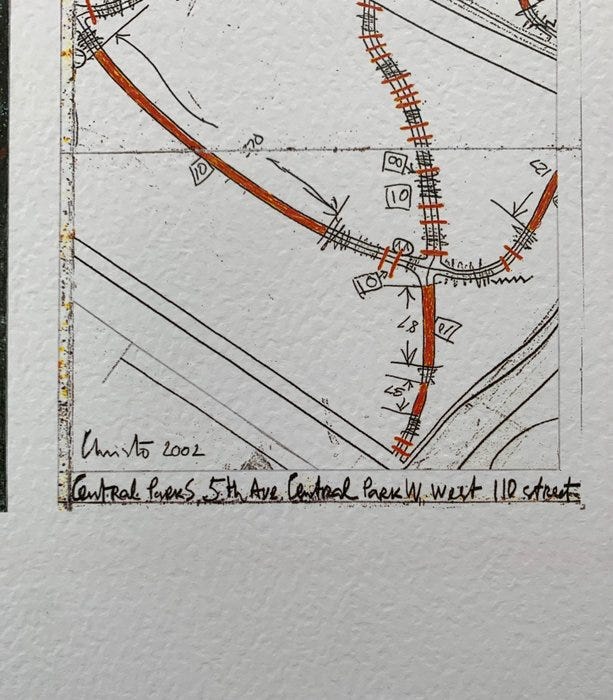 20
10
8
10
12
10
10
87
37
Christo 2002
Central Park S, 5th Ave, Central Park W, West 110 street